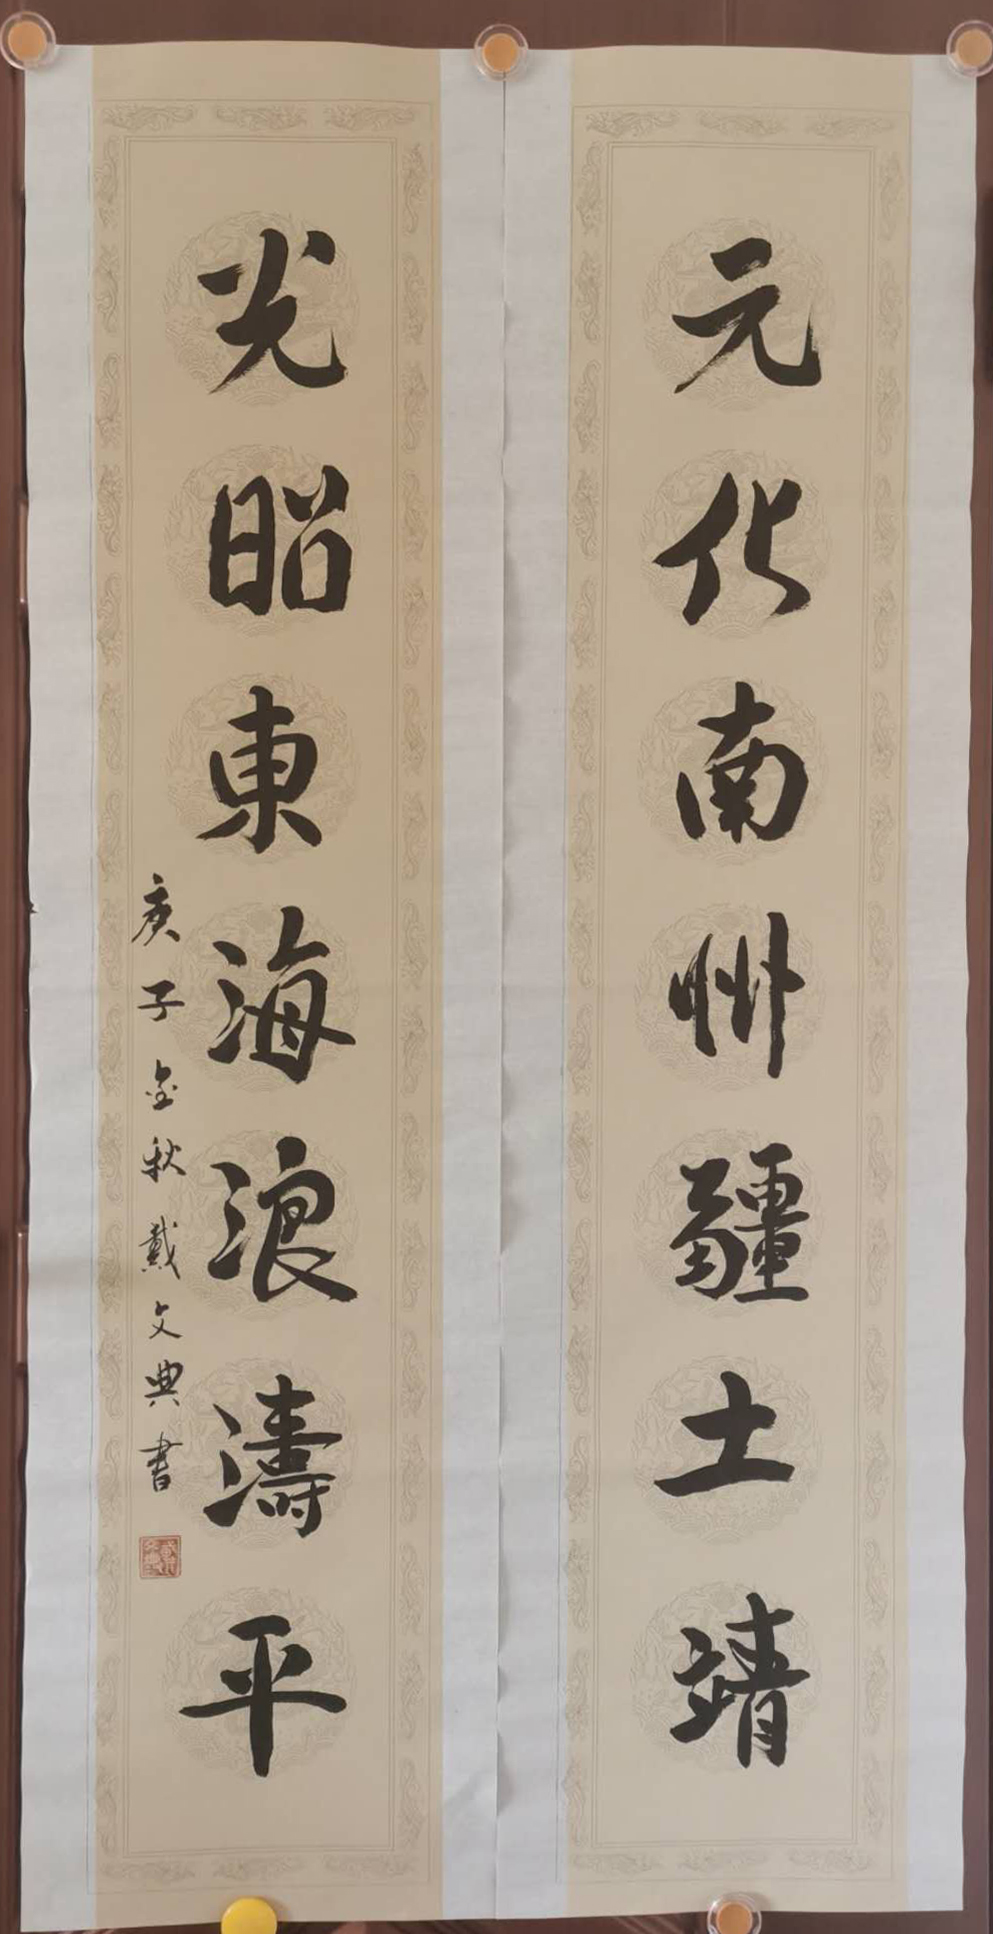 元化南州疆土靖
光昭東海浪濤平
庚子金秋戴文典書